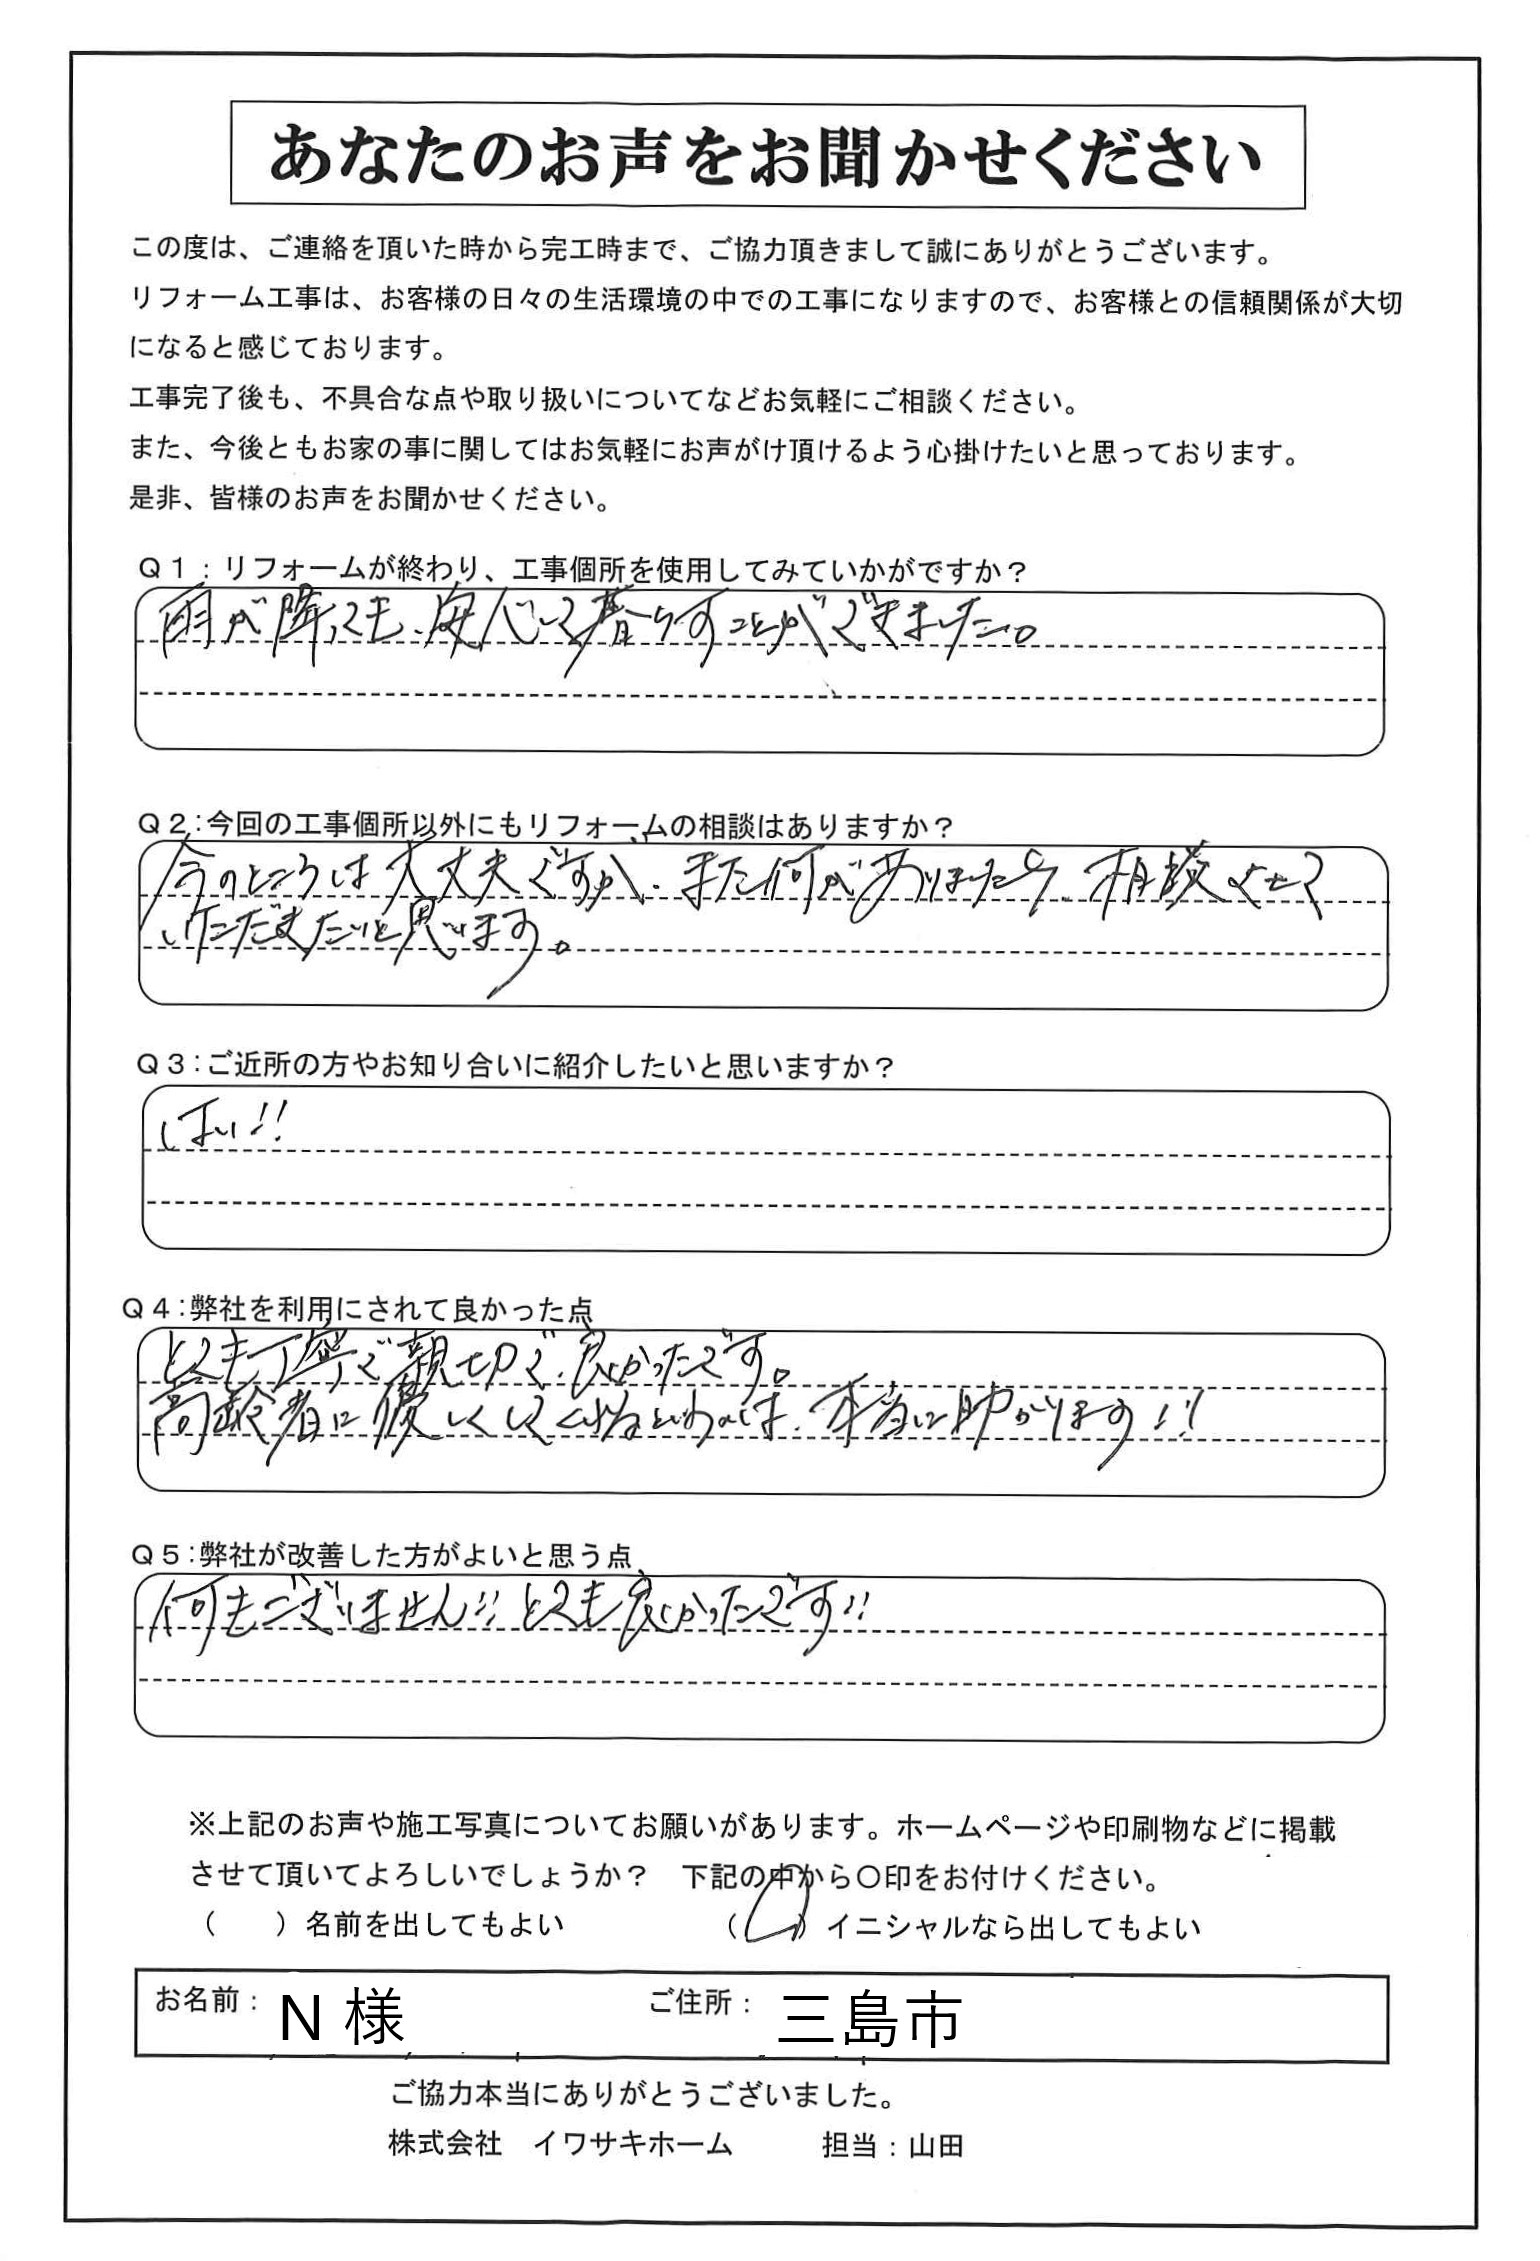 あなたのお声をお聞かせください
この度は、ご連絡を頂いた時から完工時まで、ご協力頂きまして誠にありがとうございます。
リフォーム工事は、お客様の日々の生活環境の中での工事になりますので、お客様との信頼関係が大切
になると感じております。
工事完了後も、不具合な点や取り扱いについてなどお気軽にご相談ください。
また、今後ともお家の事に関してはお気軽にお声がけ頂けるよう心掛けたいと思っております。
是非、皆様のお声をお聞かせください。
Q1：リフォームが終わり、工事個所を使用してみていかがですか？
雨が降っても、安心して暮らすことができました。
Q2:今回の工事個所以外にもリフォームの相談はありますか？
今のところは大丈夫ですが、また何かありましたら、相談させて
いただきたいと思います。
Q3:ご近所の方やお知り合いに紹介したいと思いますか？
はい!!
Q4:弊社を利用にされて良かった点
とても丁寧で親切で、良かったです。
高齢者に優しくしてくれるというのは、本当に助かります!!
Q5:弊社が改善した方がよいと思う点
何もございません!! とても良かったです!!
※上記のお声や施工写真についてお願いがあります。ホームページや印刷物などに掲載
させて頂いてよろしいでしょうか？　下記の中から〇印をお付けください。
（　　）名前を出してもよい　　（〇）イニシャルなら出してもよい
お名前：N 様　　ご住所：三島市
ご協力本当にありがとうございました。
株式会社　イワサキホーム　　担当：山田